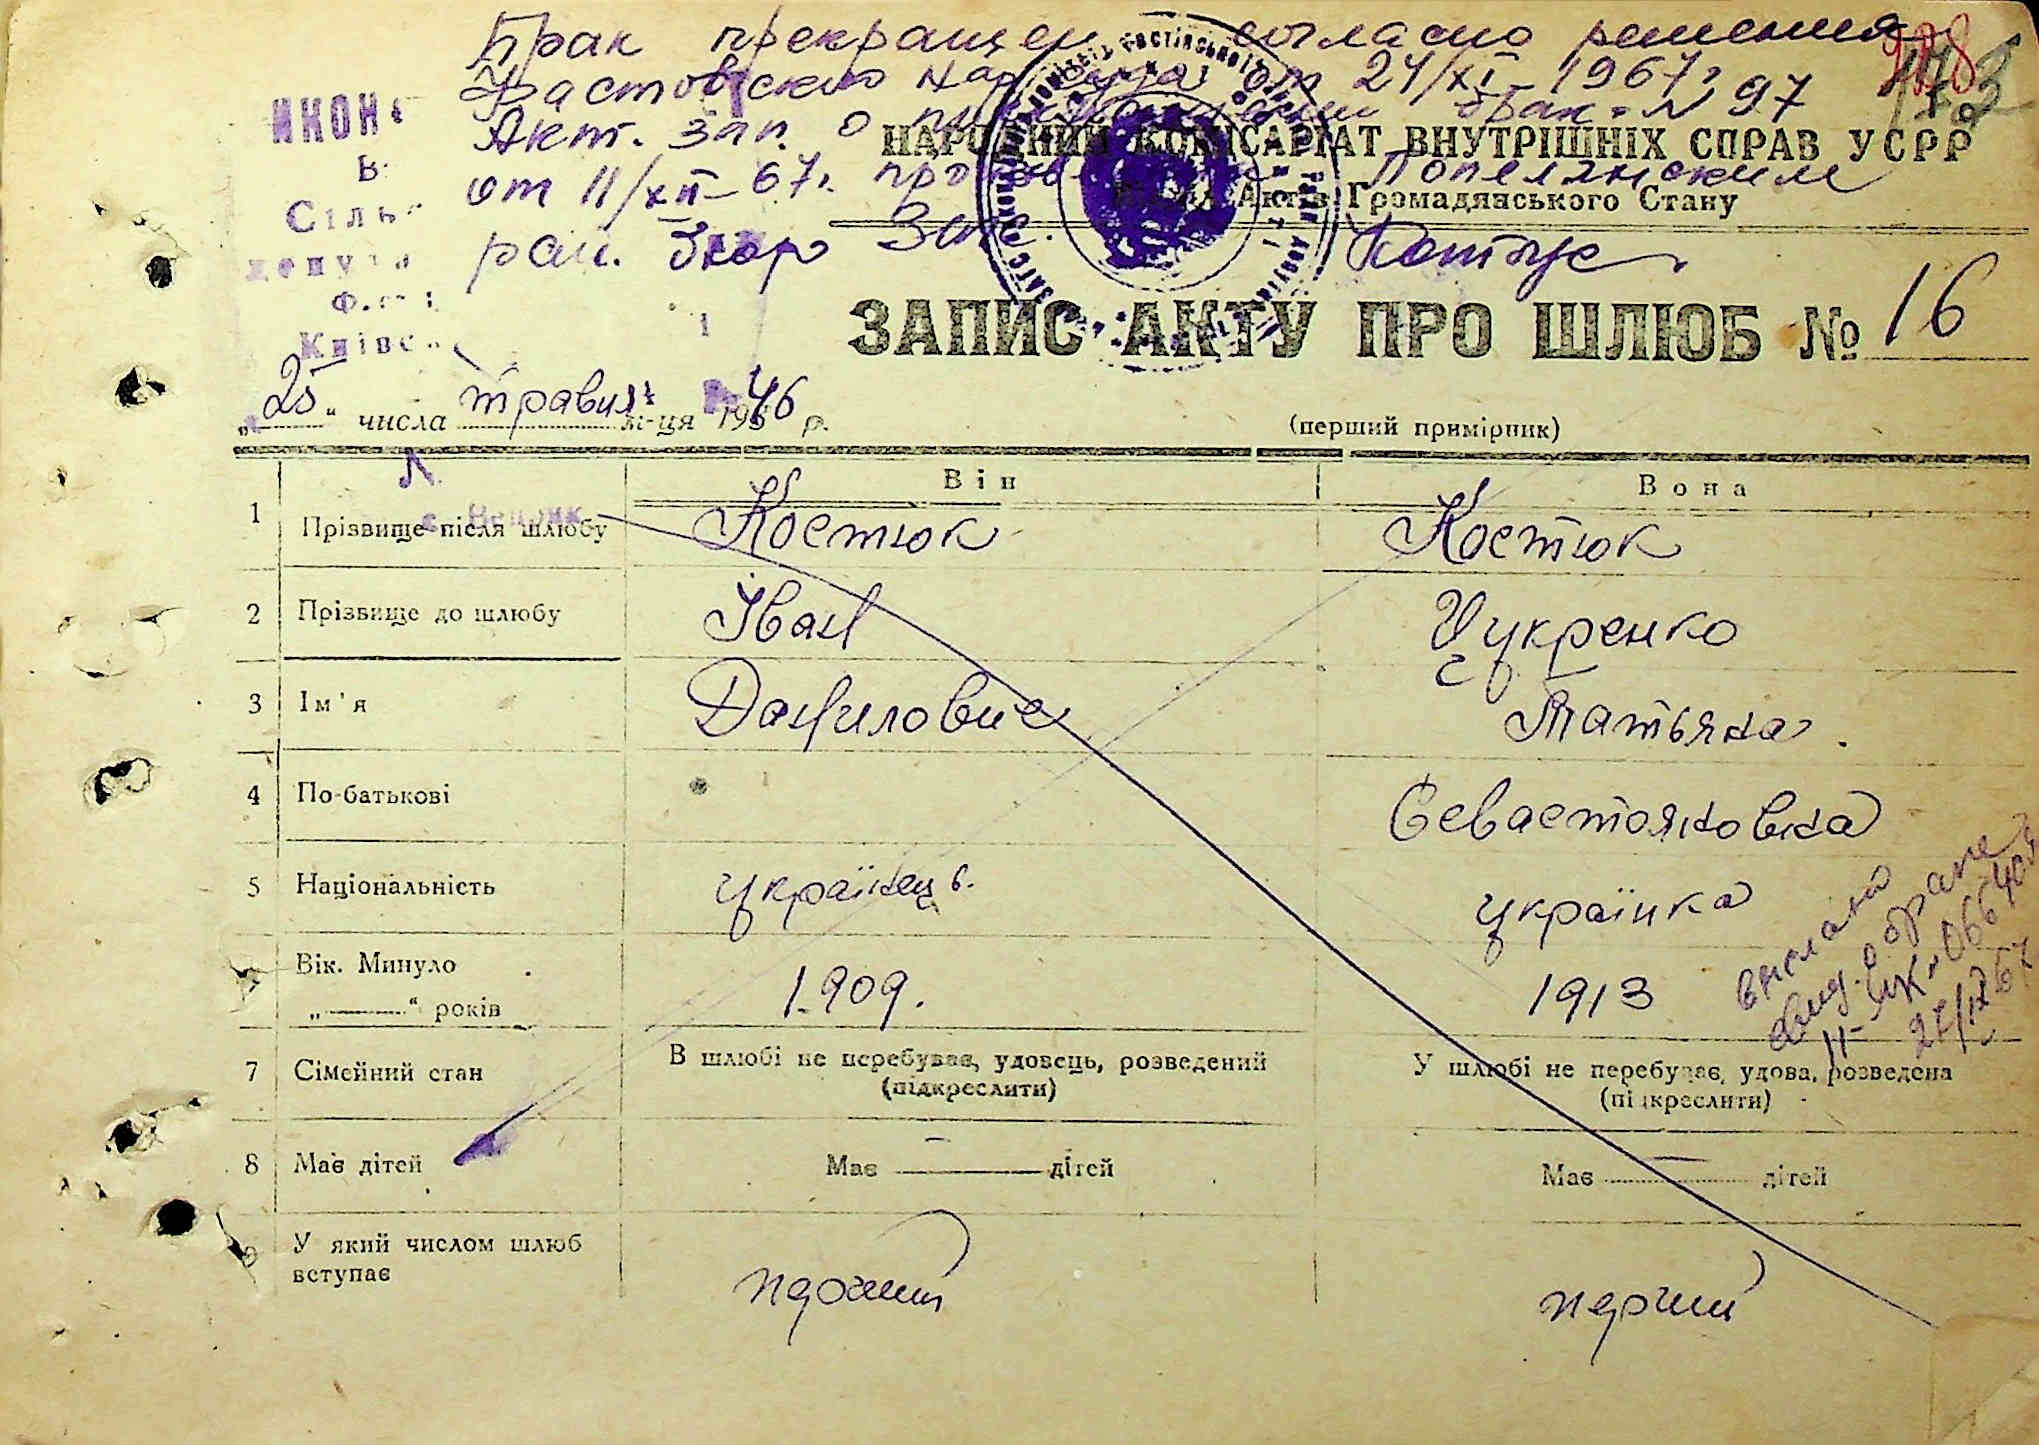 Брак прекращен согласно решения
Фастовского нар суда от 24/XI-1967г
Акт. зап. о брак. N 97
от 11/XII-67г. Попелянским
рай. бюро Загс.
178
НАРОДНИЙ КОМІСАРІАТ ВНУТРІШНІХ СПРАВ УСРР
Актів Громадянського Стану
ЗАПИС АКТУ ПРО ШЛЮБ № 16
„25“ числа травня м-ця 1946 р.
(перший примірник)
Він Вона
1 Прізвище після шлюбу Костюк Костюк
2 Прізвище до шлюбу Іван Цукренко
3 Ім'я Данилович Татьяна
4 По-батькові Севастояновна
5 Національність українець. українка
Вік. Минуло
„———“ років 1909. 1913
7 Сімейний стан В шлюбі не перебуває, удовець, розведений У шлюбі не перебуває, удова, розведена
(підкреслити) (підкреслити)
8 Має дітей Має — дітей Має — дітей
9 У який числом шлюб
вступає перший перший
выслано
свид. о браке
II-ИК N 066
27/IX 67